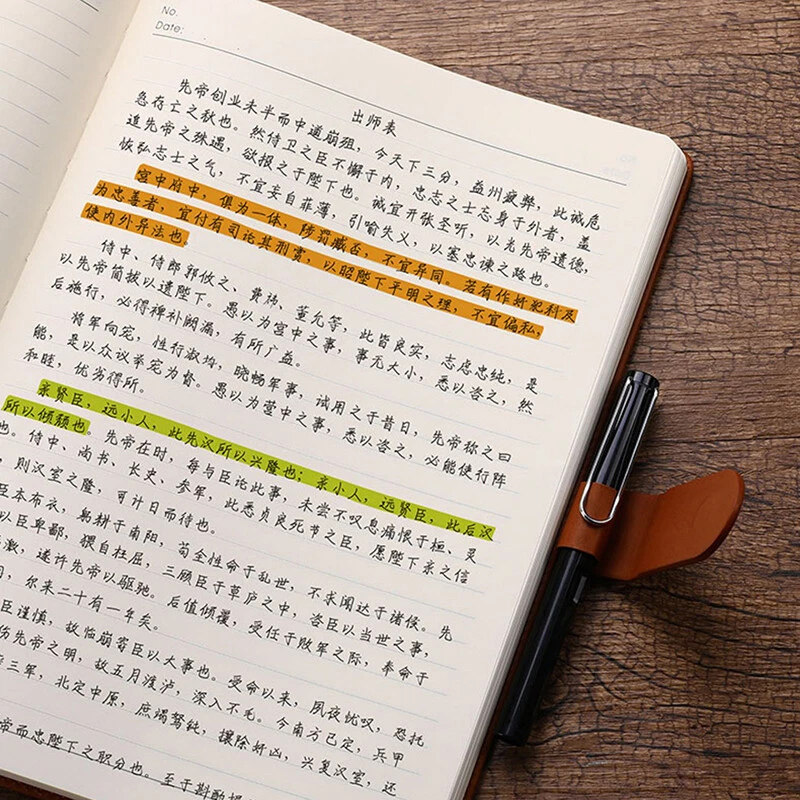 No.
Date:
出师表
先帝创业未半而中道崩殂，今天下三分，益州疲弊，此诚危
急存亡之秋也。然侍卫之臣不懈于内，忠志之士忘身于外者，盖
追先帝之殊遇，欲报之于陛下也。诚宜开张圣听，以光先帝遗德，
恢弘志士之气，不宜妄自菲薄，引喻失义，以塞忠谏之路也。
宫中府中，俱为一体，陟罚臧否，不宜异同。若有作奸犯科及
为忠善者，宜付有司论其刑赏，以昭陛下平明之理，不宜偏私，
使内外异法也。
侍中、侍郎郭攸之、费祎、董允等，此皆良实，志虑忠纯，是
以先帝简拔以遗陛下。愚以为宫中之事，事无大小，悉以咨之，然
后施行，必得裨补阙漏，有所广益。
将军向宠，性行淑均，晓畅军事，试用之于昔日，先帝称之曰
能，是以众议举宠为督。愚以为营中之事，悉以咨之，必能使行阵
和睦，优劣得所。
亲贤臣，远小人，此先汉所以兴隆也；亲小人，远贤臣，此后汉
所以倾颓也。先帝在时，每与臣论此事，未尝不叹息痛恨于桓、灵
也。侍中、尚书、长史、参军，此悉贞良死节之臣，愿陛下亲之信
，则汉室之隆，可计日而待也。
臣本布衣，躬耕于南阳，苟全性命于乱世，不求闻达于诸侯。先
以臣卑鄙，猥自枉屈，三顾臣于草庐之中，咨臣以当世之事，
激，遂许先帝以驱驰。后值倾覆，受任于败军之际，奉命于
间，尔来二十有一年矣。
臣谨慎，故临崩寄臣以大事也。受命以来，夙夜忧叹，恐托
伤先帝之明，故五月渡泸，深入不毛。今南方已定，兵甲
三军，北定中原，庶竭驽钝，攘除奸凶，兴复汉室，还
帝而忠陛下之职分也。至于斟酌